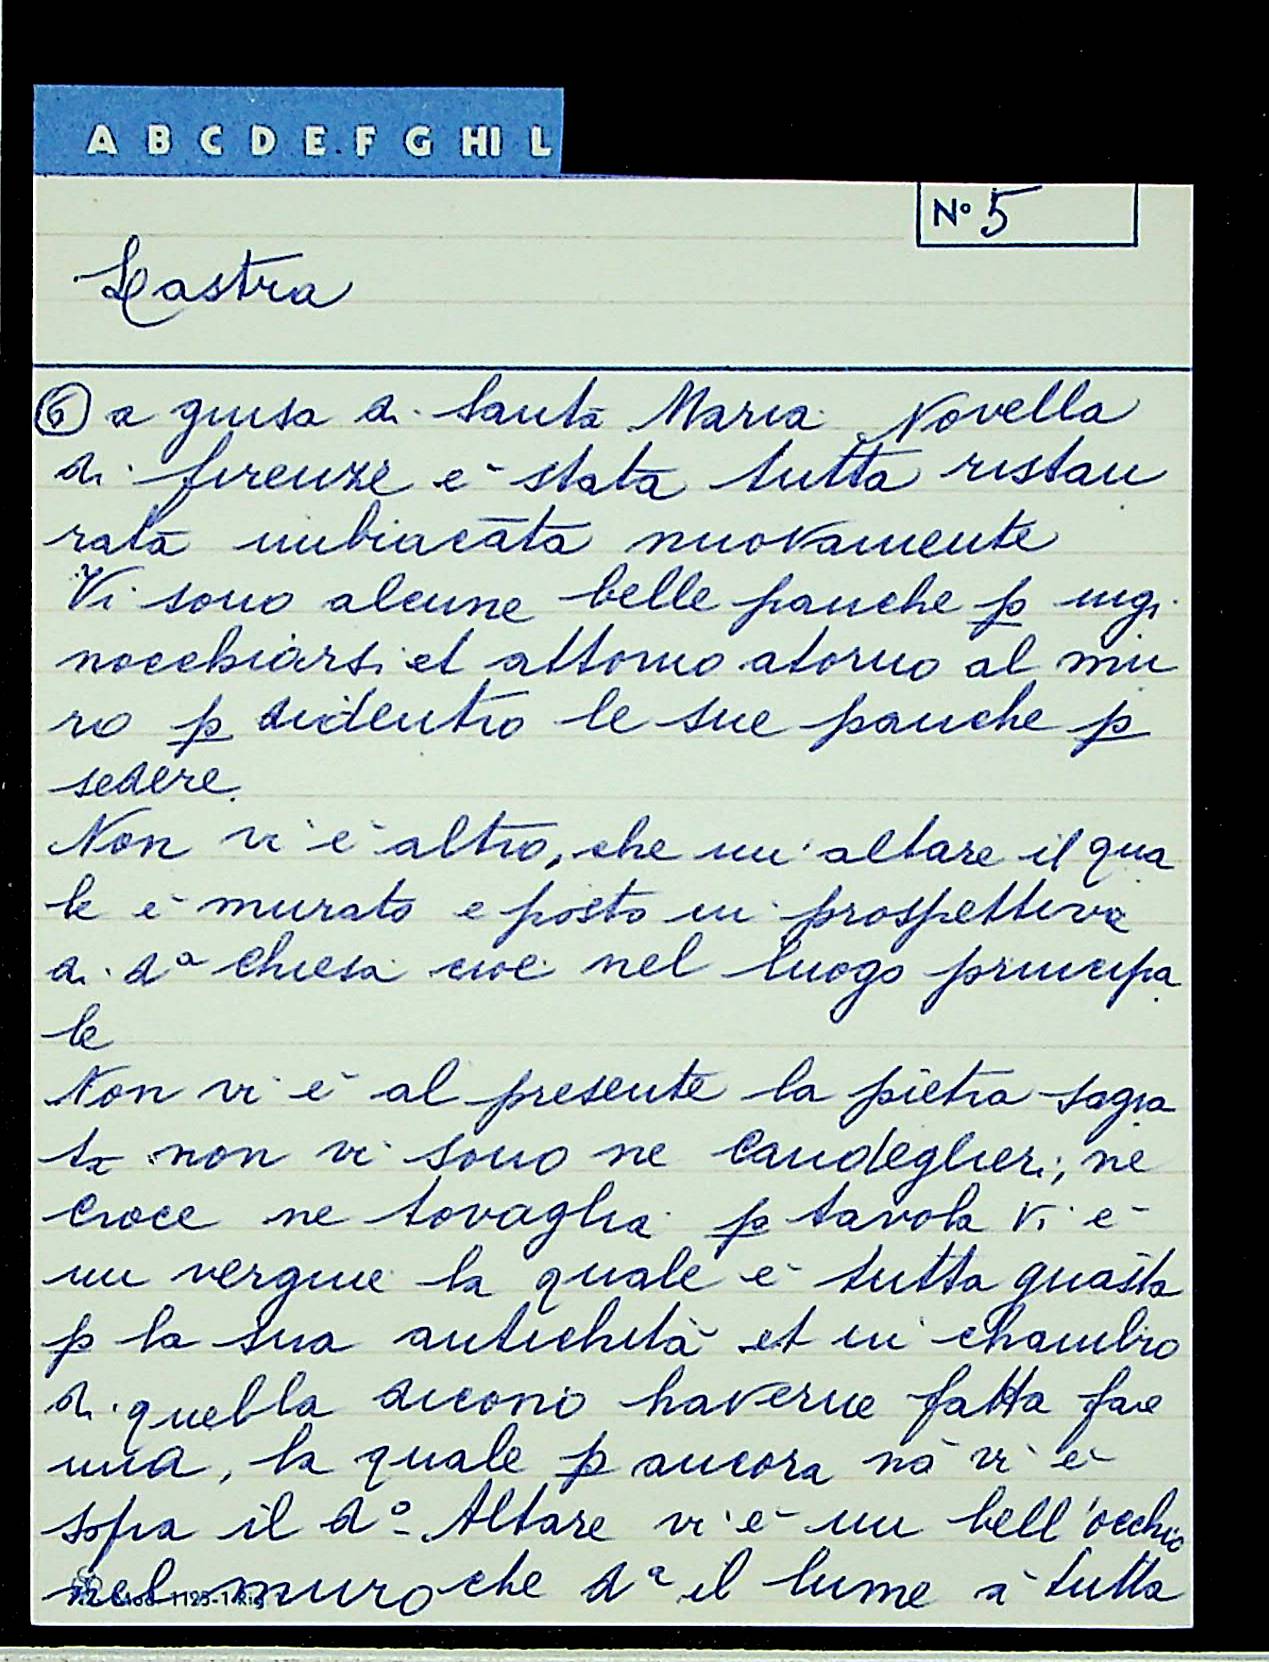 A B C D E F G HI L
N° 5
Lastra
⑥ a guisa di Santa Maria Novella
di firenze è stata tutta ristau
rata imbiacāta nuovamente
Vi sono alcune belle panche p ingi
nocchiarsi et attorno atorno al mu
ro p didentro le sue panche p
sedere.
Non vi è altro, che un altare il qua
le è murato e posto in prospettiva
di dª chiesa cioè nel luogo principa
le
Non vi è al presente la pietra sagra
ta non vi sono ne Candeglieri, ne
croce ne tovaglia p tavola vi è
un vergine la quale è tutta guasta
p la sua antichità et in chambio
di quella dicono haverne fatta fare
una, la quale p ancora nō vi è
sopra il d° Altare vi è un bell'occhio
nel muro che dª il lume à tutta